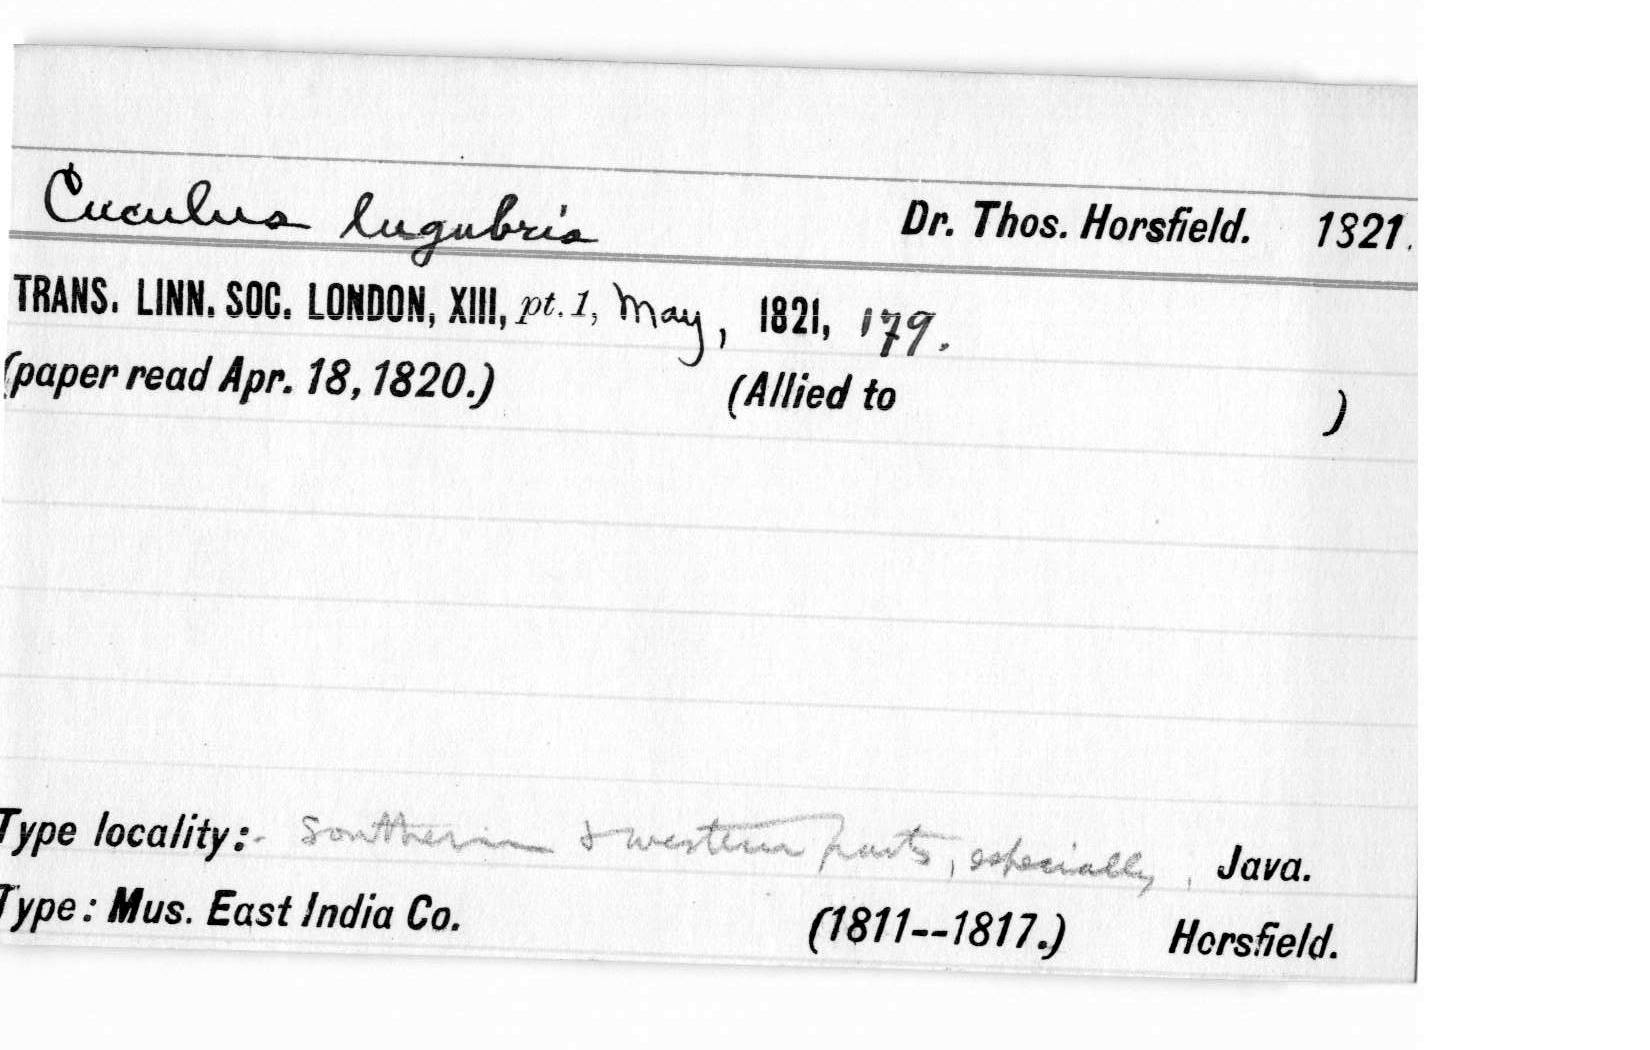 Cuculus lugubris Dr. Thos. Horsfield. 1821.
TRANS. LINN. SOC. LONDON, XIII, pt. 1, May, 1821, 179.
(paper read Apr. 18, 1820.) (Allied to )
Type locality:- Southern & western parts, especially, Java.
Type: Mus. East India Co. (1811--1817.) Horsfield.